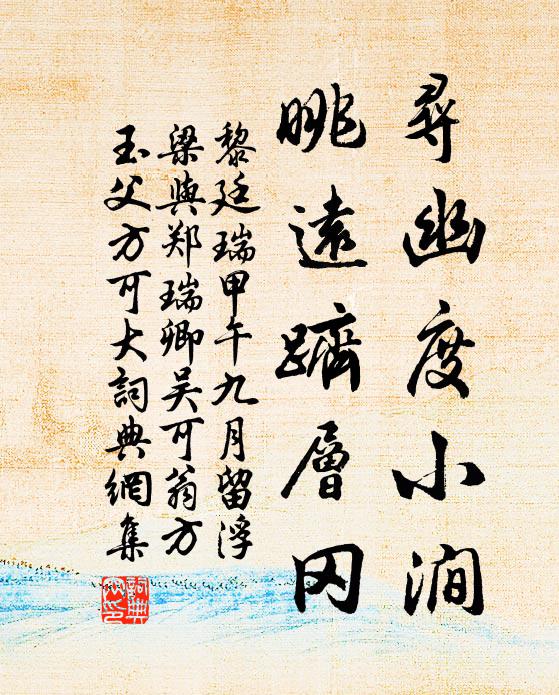 尋幽度小澗
眺遠躋層岡
黎廷瑞甲午九月留浮
梁與郑瑞卿吴可翁方
玉父方可大詞典網集